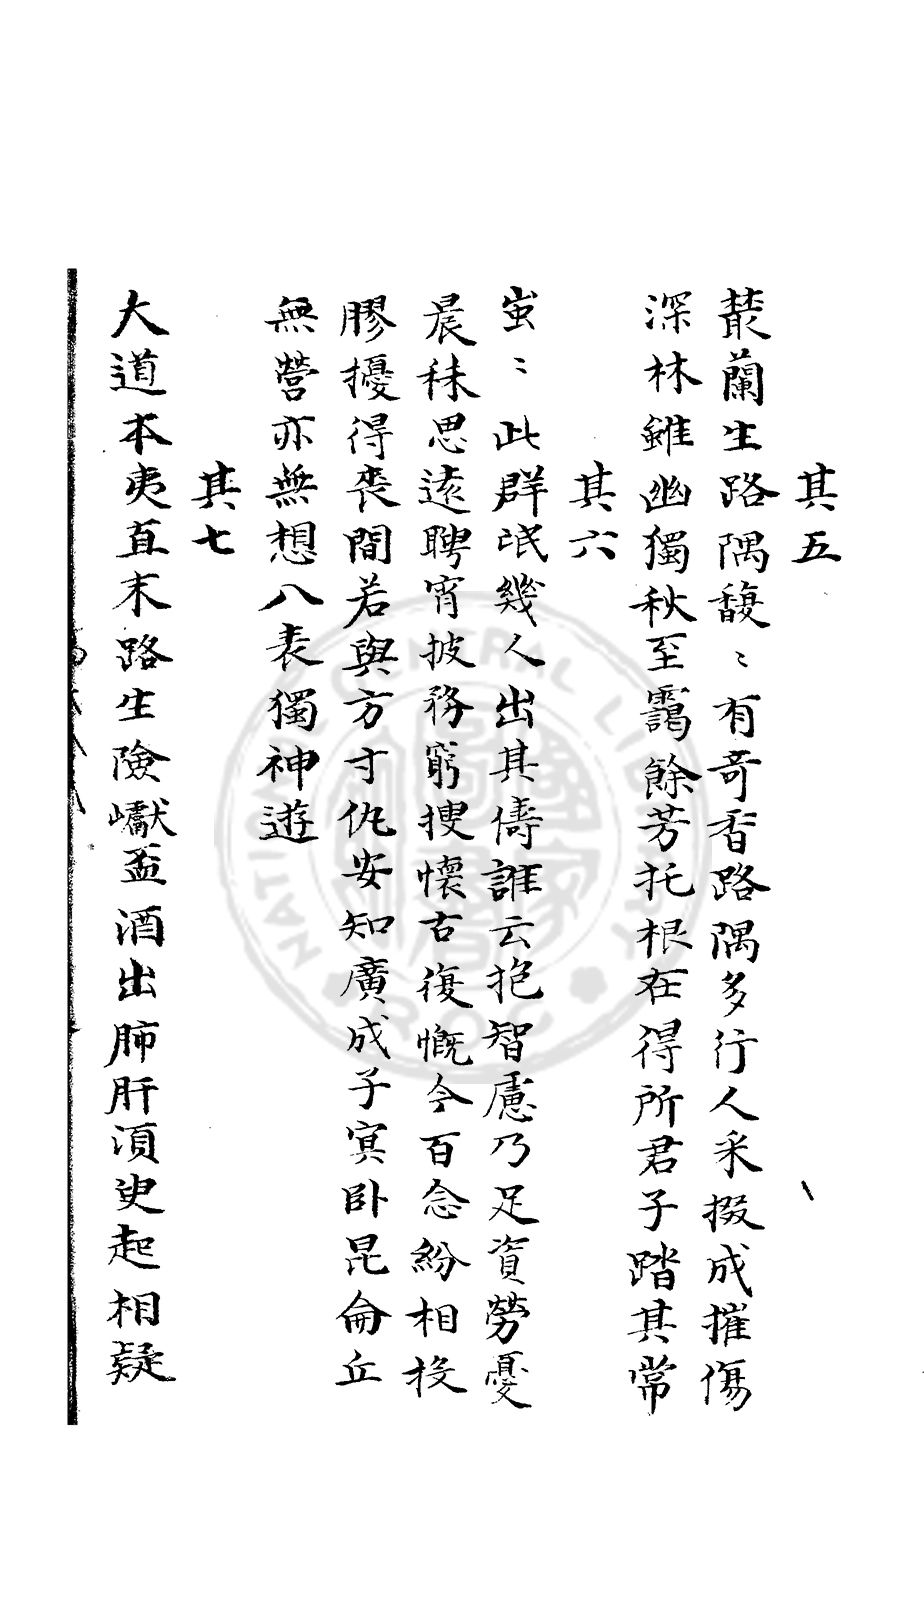 其五
叢蘭生路隅馥〻有奇香路隅多行人采掇成摧傷
深林雖幽獨秋至靄餘芳托根在得所君子踏其常
其六
蚩〻此群氓幾人出其儔誰云抱智慮乃足資勞憂
晨秣思遠騁宵披務窮搜懷古復慨今百念紛相投
膠擾得喪間若與方寸仇安知廣成子冥卧昆侖丘
無營亦無想八表獨神遊
其七
大道本夷直末路生險巇盃酒出肺肝湏臾起相疑
NATIONAL CENTRAL LIBRARY
R.O.C
國家圖書館